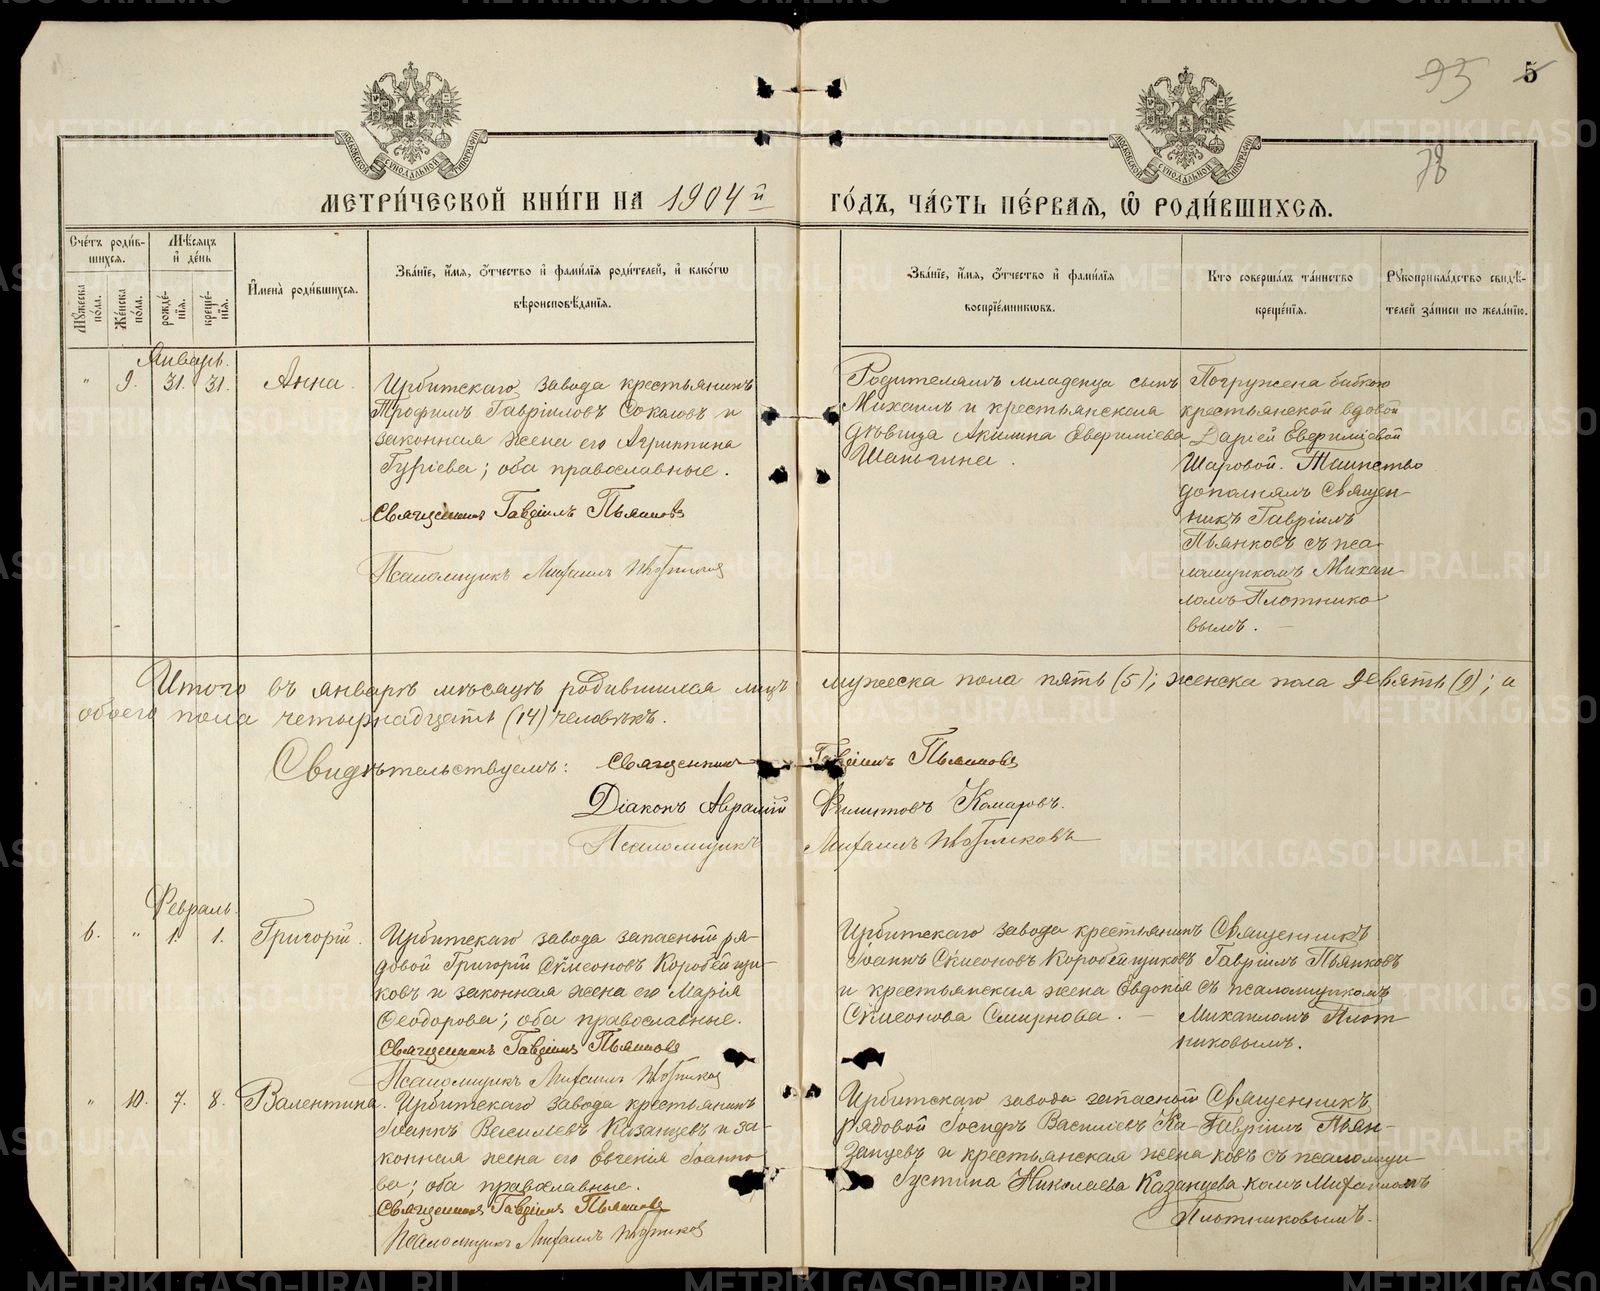 95 5
78
МОСКОВСКОЙ СѴНОДАЛЬНОЙ ТИПОГРАФІИ
МОСКОВСКОЙ СѴНОДАЛЬНОЙ ТИПОГРАФІИ
МЕТРИ́ЧЕСКОЙ КНИ́ГИ НА 1904й ГО́ДЪ, ЧА́СТЬ ПЕ́РВАЯ, Ѡ РОДИ́ВШИХСЯ.
Сче́тъ роди́вшихся.
Мꙋ́жеска по́ла.
Же́нска по́ла.
Мѣ́сяцъ и҆ де́нь
рожде́нїя.
креще́нїя.
И҆мена̀ роди́вшихся.
Зва́нїе, и҆́мя, ѻ҆́тчество и҆ фами́лїя роди́телей, и҆ како́гѡ
вѣроисповѣ́данїя.
Зва́нїе, и҆́мя, ѻ҆́тчество и҆ фами́лїя
воспрїе́мникѡвъ.
Кто̀ соверша́лъ та́инство
креще́нїя.
Рꙋкоприкла́дство свидѣ́-
телей за́писи по жела́нїю.
Январь.
" 9. 31. 31. Анна.
Ирбитскаго завода крестьянинъ
Трофимъ Гавріиловъ Соколовъ и
законная жена его Агриппина
Гуріева; оба православные.
Священникъ Гавріилъ Пьянковъ
Псаломщикъ Михаилъ Плотниковъ
Родителямъ младенца сынъ
Михаилъ и крестьянская
дѣвица Акилина Евфиміева
Шаньгина.
Погружена бабкою
крестьянской вдовой
Дарьей Евфиміевой
Шаровой. Таинство
дополнялъ Священ-
никъ Гавріилъ
Пьянковъ съ пса-
ломщикомъ Михаи-
ломъ Плотнико
вымъ.
Итого въ январѣ мѣсяцѣ родившихся лицъ мужеска пола пять (5); женска пола девять (9); а
обоего пола четырнадцать (14) человѣкъ.
Свидѣтельствуемъ: Священникъ Гавріилъ Пьянковъ
Діаконъ Авраамій Филиповъ Комаровъ.
Псаломщикъ Михаилъ Плотниковъ
Февраль.
6. " 1. 1. Григорій.
Ирбитскаго завода запасный ря-
довой Григорій Сѵмеоновъ Коробейщи-
ковъ и законная жена его Марія
Ѳеодорова; оба православные.
Священникъ Гавріилъ Пьянковъ
Псаломщикъ Михаилъ Плотниковъ
Ирбитскаго завода крестьянинъ
Іоаннъ Сѵмеоновъ Коробейщиковъ
и крестьянская жена Евдокія
Сѵмеонова Смирнова.
Священникъ
Гавріилъ Пьянковъ
съ псаломщикомъ
Михаиломъ Плот
никовымъ.
" 10. 7. 8. Валентина.
Ирбитскаго завода крестьянинъ
Іоаннъ Василіевъ Казанцевъ и за-
конная жена его Евгенія Іоанно
ва; оба православные.
Священникъ Гавріилъ Пьянковъ
Псаломщикъ Михаилъ Плотниковъ
Ирбитскаго завода запасной
рядовой Іосифъ Василіевъ Ка-
занцевъ и крестьянская жена
Іустина Николаева Казанцева
Священникъ
Гавріилъ Пьян-
ковъ съ псаломщи-
комъ Михаиломъ
Плотниковымъ.
METRIKI.GASO-URAL.RU